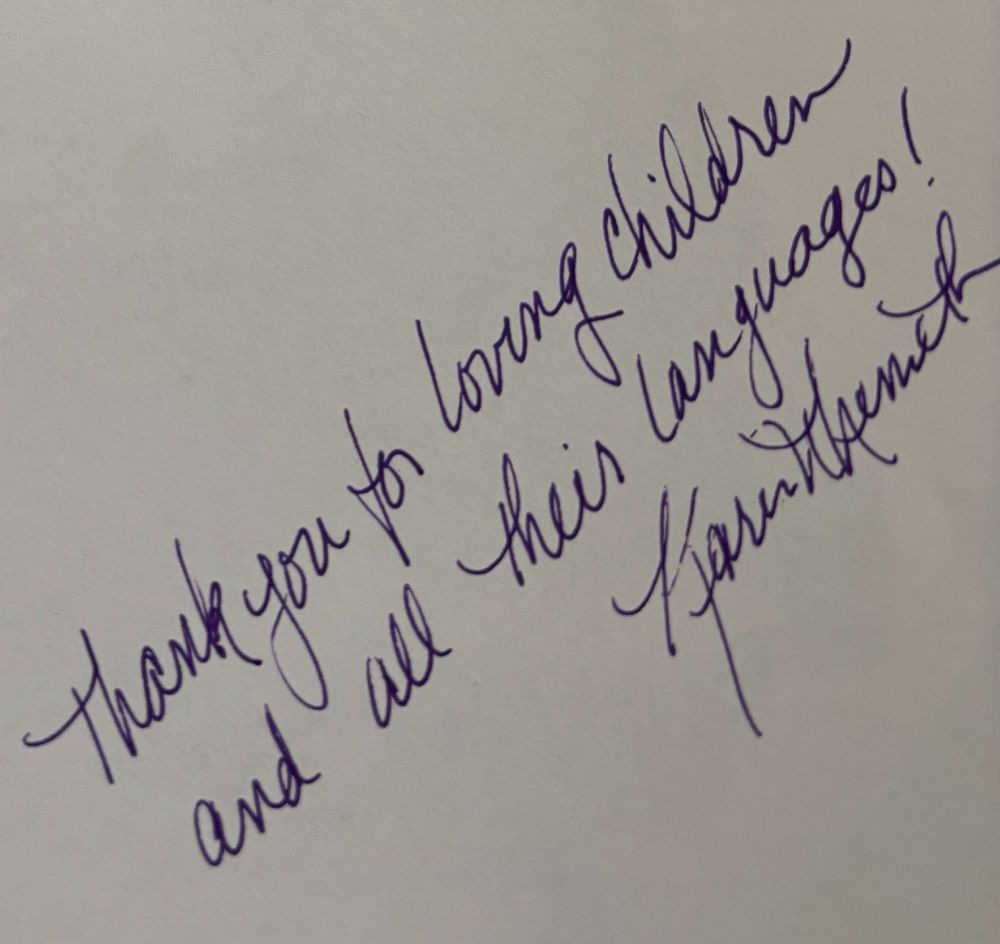 Thank you for loving children
and all their languages!
Karen Nemeth